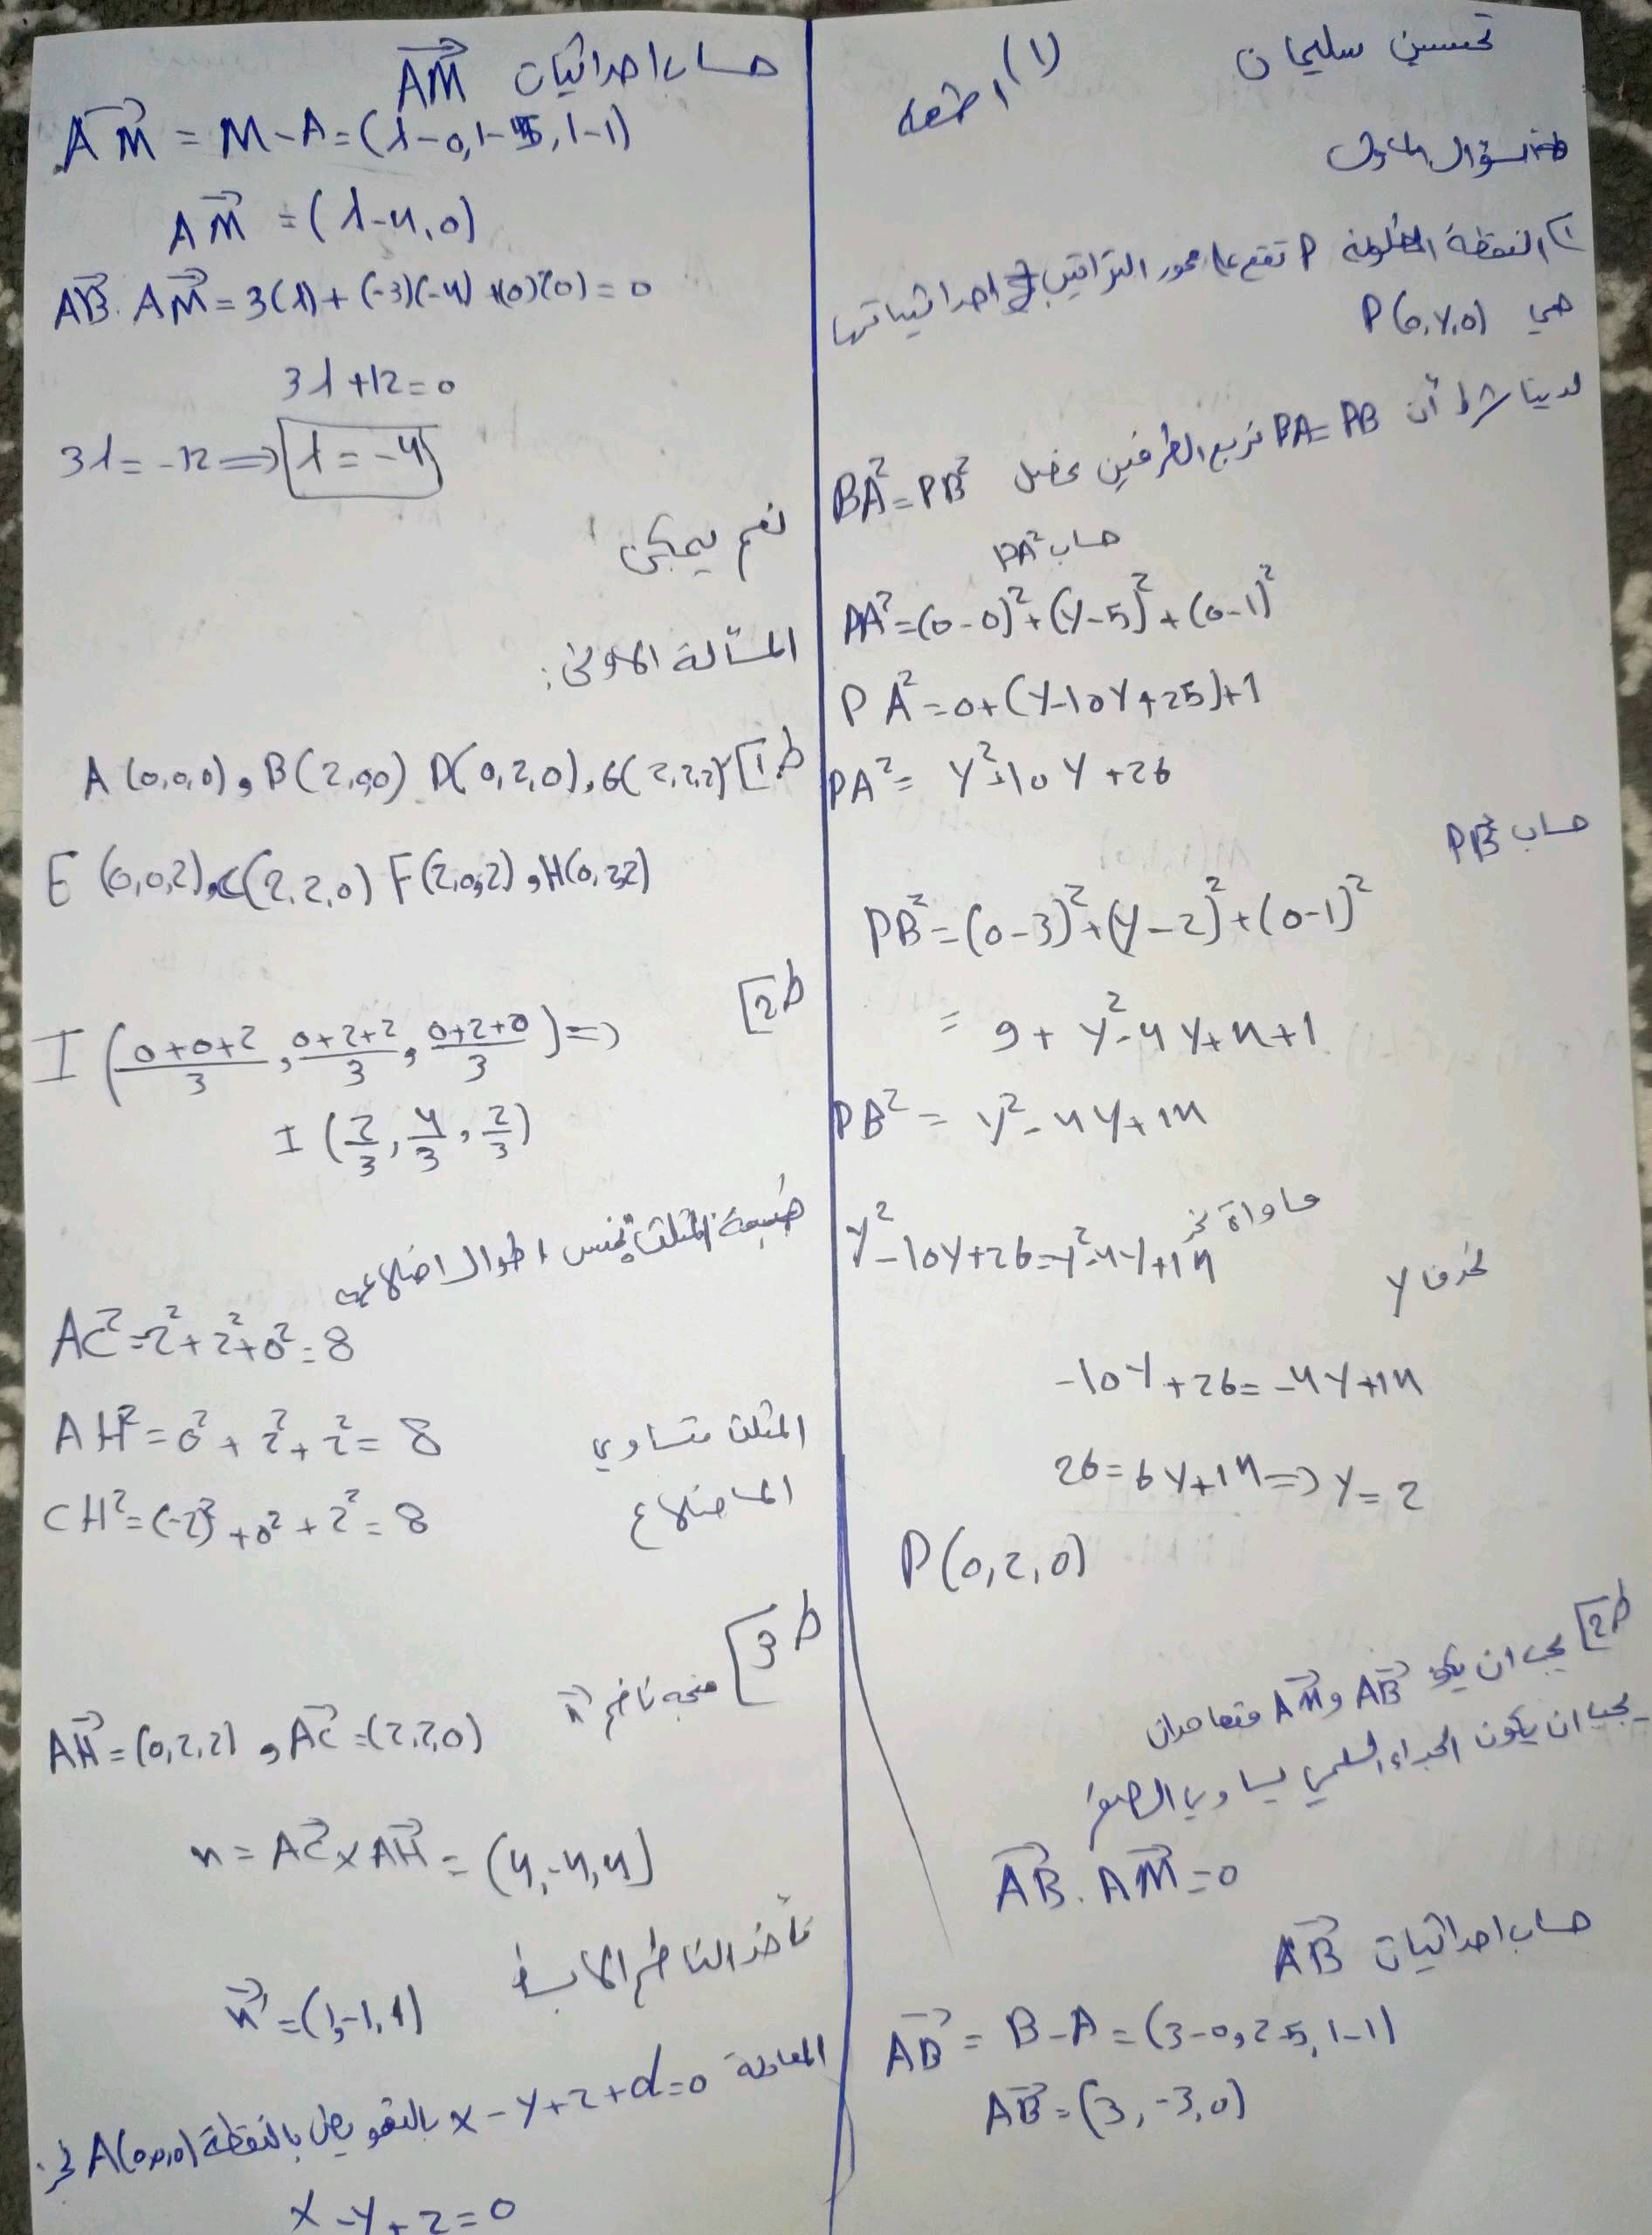 تحسين سليمان
(١)
السؤال الاول
النقطة المطلوبة P تقع على محور التراتيب احداثياتها
هي P(0,y,0)
لدينا شرط أن PA=PB نربع الطرفين نحصل
BA²=PB²
حساب PA²
PA²=(0-0)²+(y-5)²+(0-1)²
PA²=0+(y-10y+25)+1
PA²= y²-10y+26
حساب PB²
PB²=(0-3)²+(y-2)²+(0-1)²
= 9+y²-4y+4+1
PB²= y²-4y+14
y²-10y+26=y²-4y+14
نحذف y
-10y+26=-4y+14
26=6y+14⇒y=2
P(0,2,0)
ط2 يجب ان يكون AB و AM متعامدان
يجب ان يكون الجداء السلمي يساوي الصفر
AB.AM=0
حساب احداثيات AB
AB = B-A=(3-0,2-5,1-1)
AB=(3,-3,0)
حساب احداثيات AM
AM = M-A=(λ-0,1-5,1-1)
AM =(λ-4,0)
AB.AM=3(λ)+(-3)(-4)+(0)(0)=0
3λ+12=0
3λ=-12⇒λ=-4
نعم يمكن
المسألة الاولى:
ط1 A(0,0,0), B(2,0,0) D(0,2,0), G(2,2,2)
E(0,0,2), C(2,2,0) F(2,0,2), H(0,2,2)
ط2
I(0+0+2/3, 0+2+2/3, 0+2+0/3)⇒
I(2/3, 4/3, 2/3)
طبيعة المثلث اطوال اضلاعه
AC²=2²+2²+0²=8
AH²=0²+2²+2²=8
المثلث متساوي
CH²=(-2)²+0²+2²=8
الاضلاع
ط3 متجه ناظم n
AH=(0,2,2), AC=(2,2,0)
n=AC×AH=(4,-4,4)
نأخذ الناظم الابسط
n'=(1,-1,1)
المعادلة x-y+z+d=0
بالتعويض بالنقطة A(0,0,0) نجد
x-y+z=0